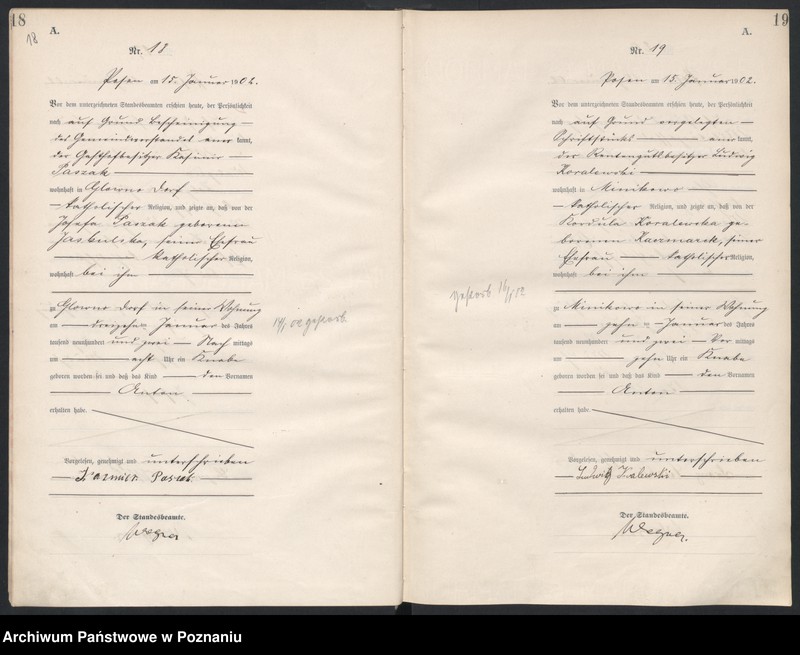 18
18
A.
Nr. 18
Posen am 15. Januar 1902.
Vor dem unterzeichneten Standesbeamten erschien heute, der Persönlichkeit
nach auf Grund Bescheinigung
des Gemeindevorstandes aner kannt,
der Gasthofbesitzer Kasimir
Paszak
wohnhaft in Glowno Dorf
katholischer Religion, und zeigte an, daß von der
Josefa Paszak geborenen
Jaskulska, seiner Ehefrau
katholischer Religion,
wohnhaft bei ihm
zu Glowno Dorf in seiner Wohnung
am dreizehnten Januar des Jahres
tausend neunhundert und zwei Nach mittags
um acht Uhr ein Knabe
geboren worden sei und daß das Kind den Vornamen
Anton
erhalten habe.
Vorgelesen, genehmigt und unterschrieben
Kazmierz Paszak
Der Standesbeamte.
Wegner
14/1 02 gestorb.
19
A.
Nr. 19
Posen am 15. Januar 1902.
Vor dem unterzeichneten Standesbeamten erschien heute, der Persönlichkeit
nach auf Grund vorgelegten
Schriftstücks aner kannt,
der Rentengutsbesitzer Ludwig
Koralewski
wohnhaft in Minikowo
katholischer Religion, und zeigte an, daß von der
Kordula Koralewska ge-
borenen Kaczmarek, seiner
Ehefrau katholischer Religion,
wohnhaft bei ihm
zu Minikowo in seiner Wohnung
am zehnten Januar des Jahres
tausend neunhundert und zwei Vor mittags
um zehn Uhr ein Knabe
geboren worden sei und daß das Kind den Vornamen
Anton
erhalten habe.
Vorgelesen, genehmigt und unterschrieben
Ludwig Koralewski
Der Standesbeamte.
Wegner.
gestorb. 16/1 02
Archiwum Państwowe w Poznaniu